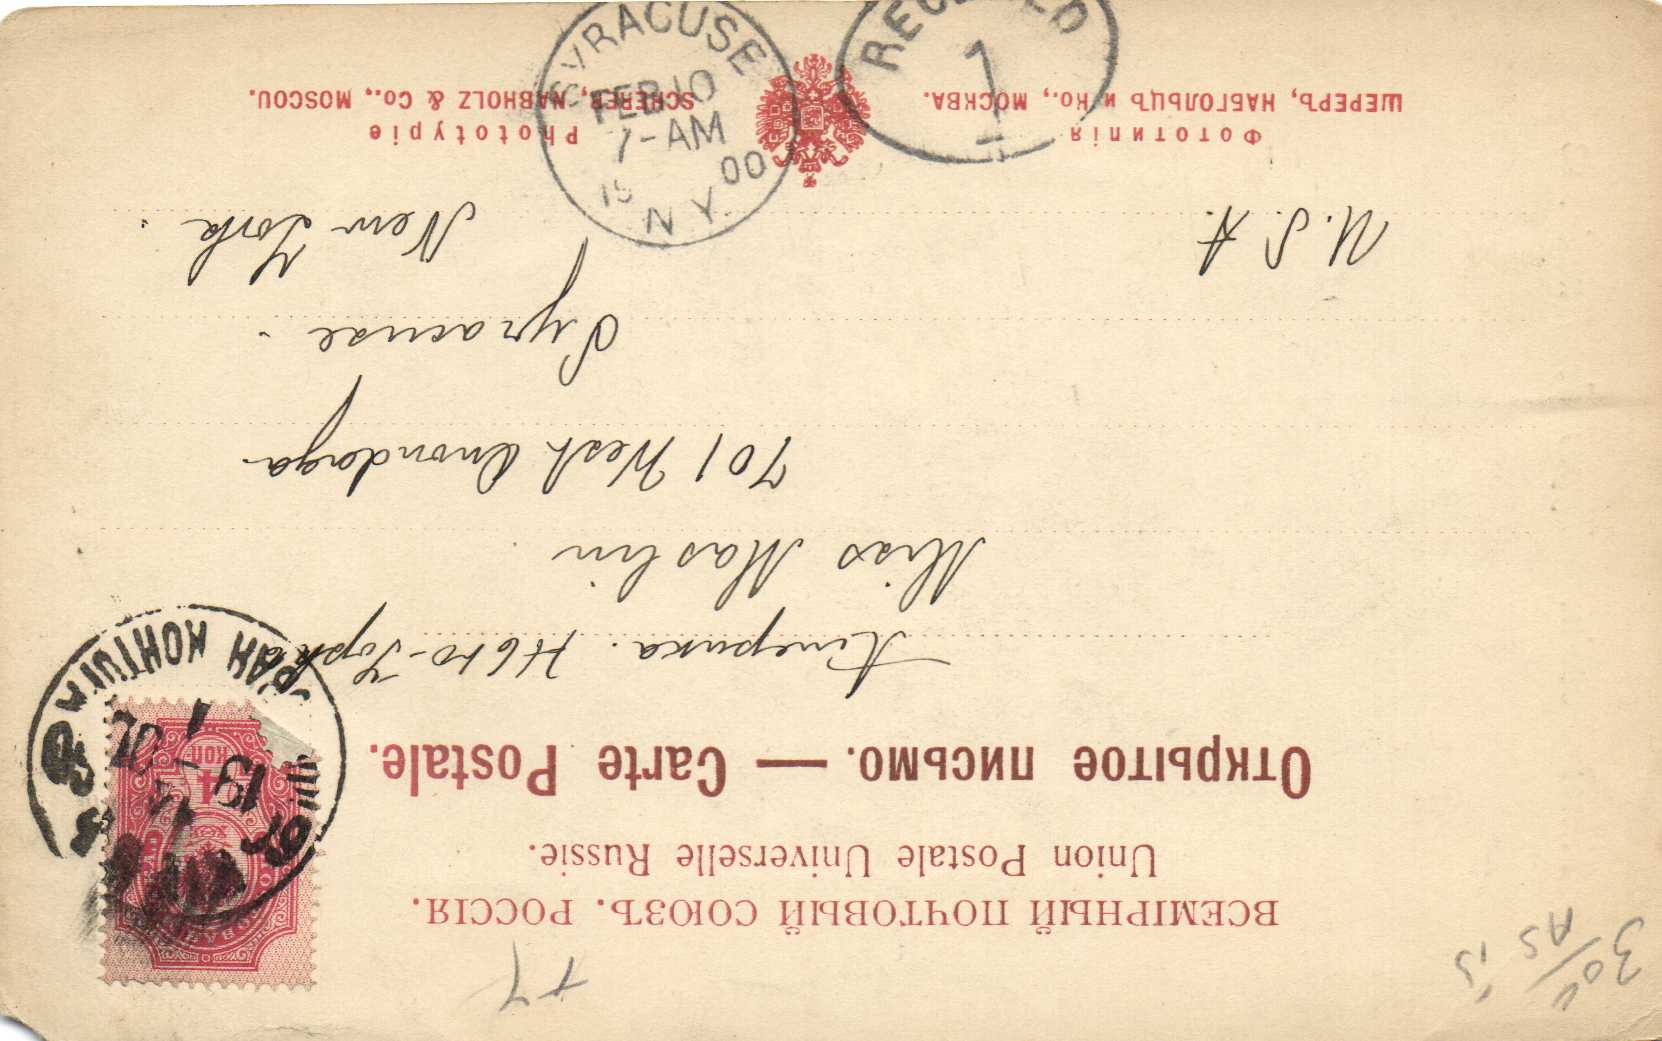 ВСЕМІРНЫЙ ПОЧТОВЫЙ СОЮЗЪ. РОССІЯ.
Union Postale Universelle Russie.
Открытое письмо. — Carte Postale.
Америка. Нью-Іоркъ
Miss Maslin
701 West Onondaga
Syracuse.
New York.
U. S. A.
Фототипія
ШЕРЕРЪ, НАБГОЛЬЦЪ и Ко., МОСКВА.
Phototypie
SCHERER, NABHOLZ & Co., MOSCOU.
SYRACUSE
FEB 10
7-AM
19 00
N.Y.
RECEIVED
1
4
КОП.
30
AS IS